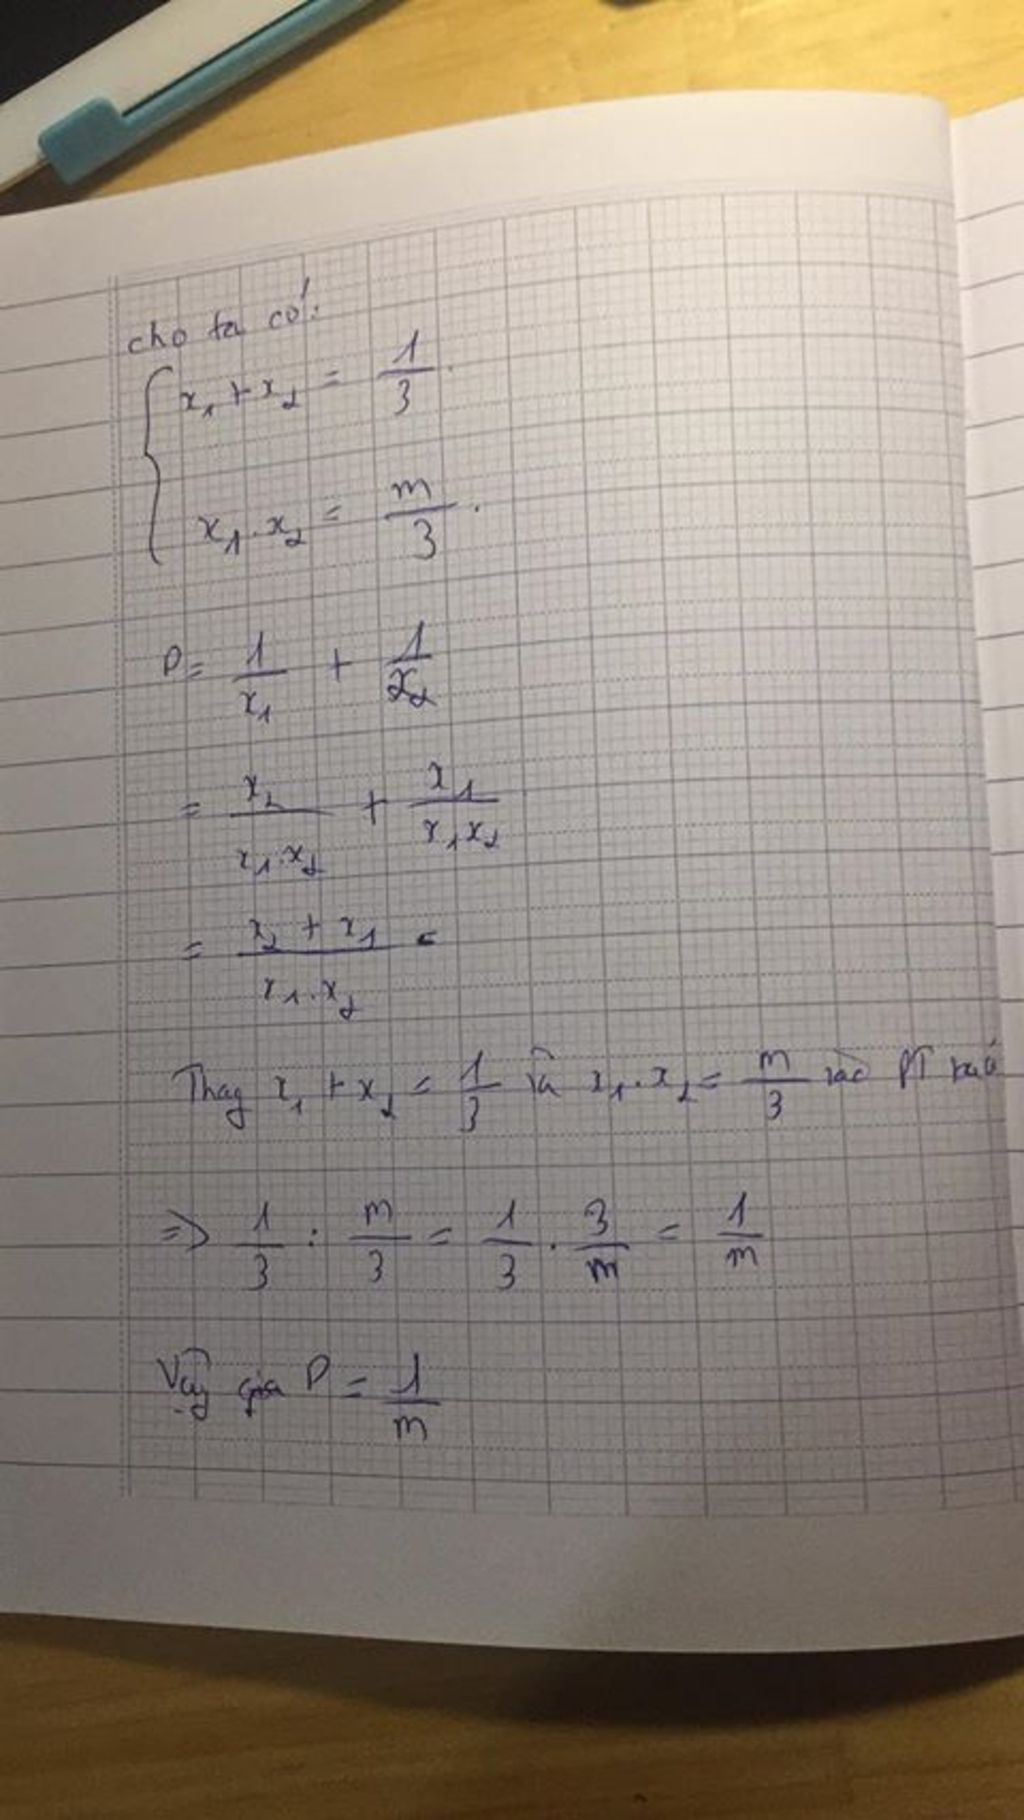 cho ta có:
x₁ + x₂ = 1/3.
x₁ . x₂ = m/3.
P = 1/x₁ + 1/x₂
= x₂/(x₁.x₂) + x₁/(x₁x₂)
= (x₂ + x₁)/(x₁.x₂) =
Thay x₁ + x₂ = 1/3 và x₁ . x₂ = m/3 vào PT
=> 1/3 : m/3 = 1/3 . 3/m = 1/m
Vậy P = 1/m